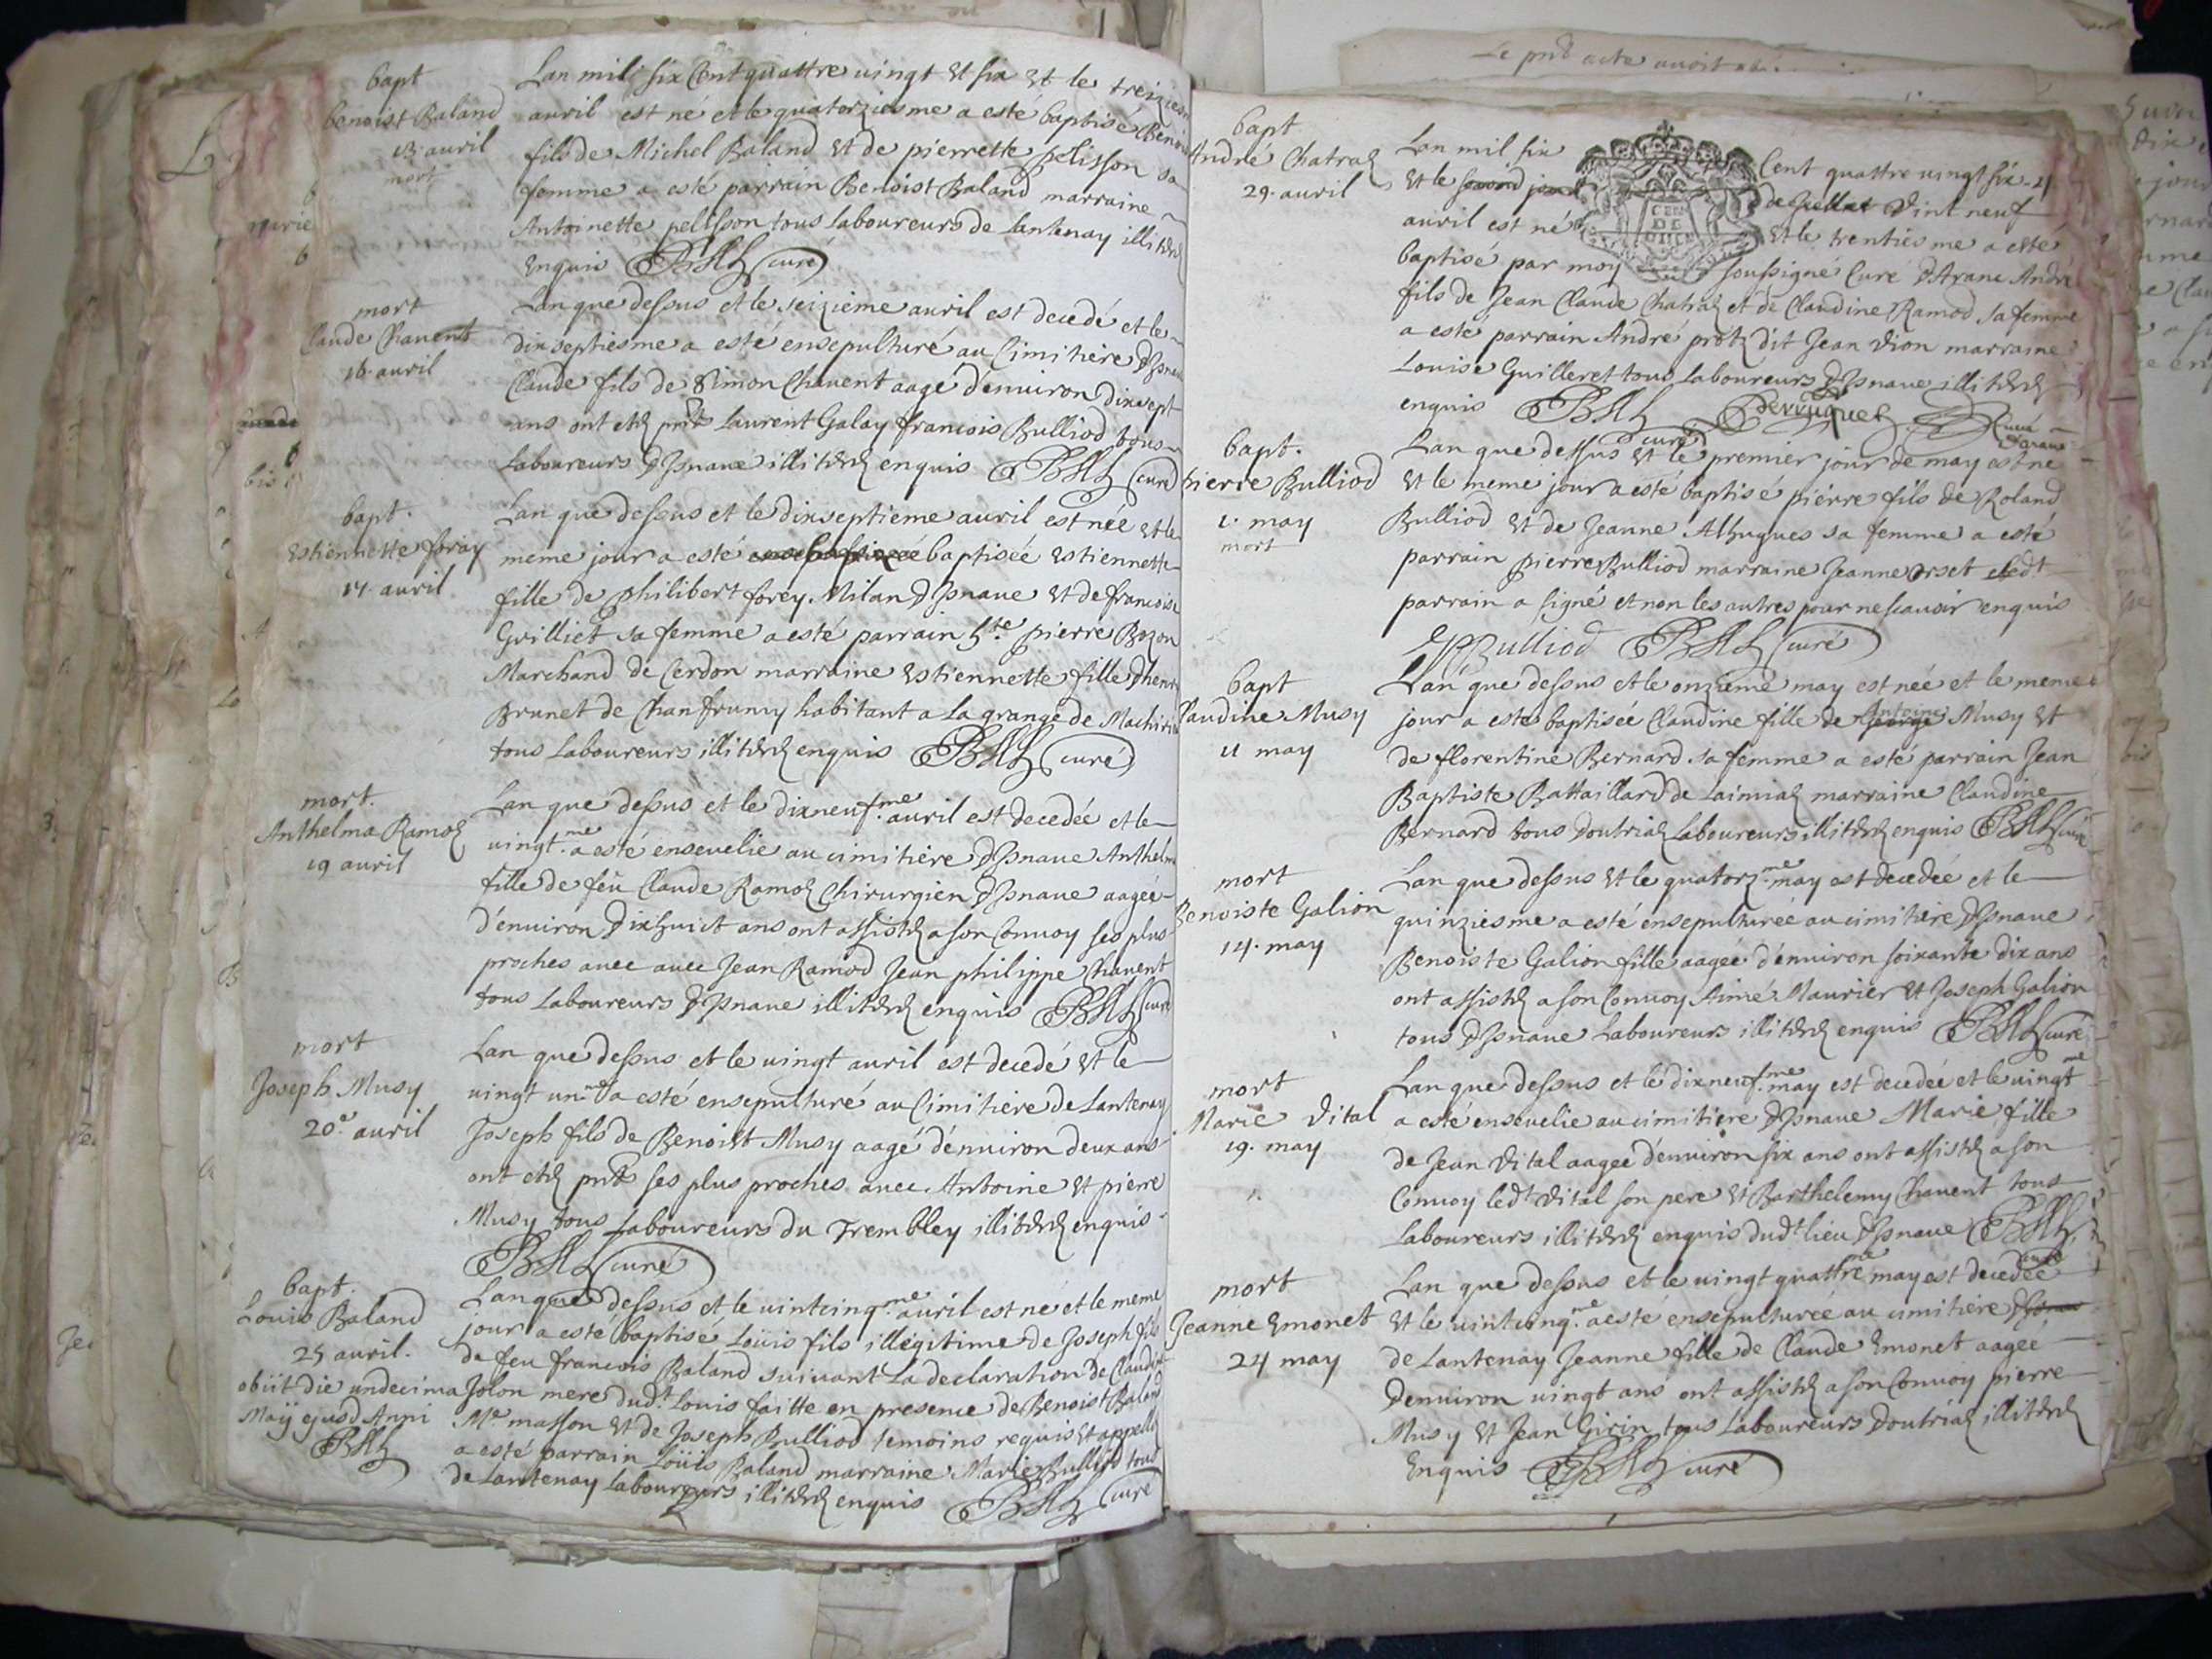 Le pnt acte auoit
bapt
benoist Baland
13 auril
mort
Lan mil six Cent quattre uingt Et six Et le treiziesme
auril est né et le quatorziesme a esté baptisé Benoist
fils de Michel Baland Et de pierrette pelisson sa
femme a esté parrain Benoist Baland marraine
Antoinette pelisson tous laboureurs de Lantenay illiterez
Enquis curé
mort
Claude Chauent
16 auril
Lan que dessus et le seizieme auril est decedé et le
dixseptiesme a esté ensepulturé au Cimitiere Disnaue
Claude fils de Simon Chauent aagé d'enuiron dixsept
ans ont etez pnts Laurent Galay francois Bulliod tous
Laboureurs Disnaue illiterez enquis curé
bapt.
Estiennette foray
17 auril
Lan que dessus et le dixseptieme auril est née et le
meme jour a esté baptiseé Estiennette
fille de philibert forey Milan Disnaue Et de francoise
Grilliet sa femme a esté parrain pierre Bozon
Marchand de Cerdon marraine Estiennette fille dhenri
Brunet de habitant a la grange de
tous Laboureurs illiterez enquis curé
mort.
Anthelma Ramoz
19 auril
Lan que dessus et le dixneuf.me auril est decedée et le
uingt.me a esté enseuelie au cimitiere Disnaue Anthelma
fille de feu Claude Ramoz Chirurgien Disnaue aageé
d'enuiron Dixhuict ans ont assistez a son Conuoy ses plus
proches auec auec Jean Ramod Jean philippe Chauent
tous Laboureurs Disnaue illiterez enquis curé
mort
Joseph Musy
20e auril
Lan que dessus et le uingt auril est decedé Et le
uingt un.me a esté ensepulturé au Cimitiere de Lantenay
Joseph fils de Benoist Musy aagé d'enuiron deux ans
ont etez pnts ses plus proches auec Antoine Et pierre
Musy tous Laboureurs du Trembley illiterez enquis
curé
bapt.
Louis Baland
25 auril.
obiit die undecima
Maij ejusd Anni
Lan que dessus et le uintcinq.me auril est né et le meme
jour a esté baptisé Loüis fils illégitime de Joseph fils
de feu francois Baland suiuant La declaration de Claudine
Jolon mere dudt Louis faitte en presence de Benoist Baland
Me masson Et de Joseph Bulliod temoins requis Et appellez
a esté parrain Loüis Baland marraine Marie Bulliod tous
de Lantenay Laboureurs illiterez enquis curé
bapt
André Chatraz
29. auril
Lan mil six Cent quattre uingt six
Et le second jour de Vint neuf
auril est né Et le trentiesme a esté
baptisé par moy soussigné Curé DArane André
fils de Jean Claude Chatraz et de Claudine Ramod sa femme
a esté parrain André dit Jean Vion marraine
Louise Guilleret tous Laboureurs Disnaue illiterez
enquis curé Perruquet Curé
Darane
bapt.
pierre Bulliod
1. may
mort
Lan que dessus Et le premier jour de may est ne
Et le meme jour a esté baptisé pierre fils de Roland
Bulliod Et de Jeanne Alhugues sa femme a esté
parrain pierre Bulliod marraine Jeanne orset ledt
parrain a signé et non les autres pour ne scauoir enquis
PBulliod curé
bapt
Claudine Musy
11 may
Lan que dessus et le onzieme may est née et le meme
jour a esté baptisée Claudine fille de George Antoine Musy Et
de florentine Bernard sa femme a esté parrain Jean
Baptiste Battaillard de Laimiaz marraine Claudine
Bernard tous Doutriaz Laboureurs illiterez enquis curé
mort
Benoiste Galion
14. may
Lan que dessus Et le quatorz.me may est decedée et le
quinziesme a esté ensepultureé au cimitiere Disnaue
Benoiste Galion fille aagée d'enuiron soixante dix ans
ont assistez a son Conuoy Aimé Maurier Et Joseph Galion
tous Disnaue Laboureurs illiterez enquis curé
mort
Marie Vital
19. may
Lan que dessus et le dixneuf.me may est decedée et le uingt.me
a esté enseuelie au cimitiere Disnaue Marie fille
de Jean Vital aagée d'enuiron six ans ont assistez a son
Conuoy ledt Vital son pere Et Barthelemy Chauent tous
Laboureurs illiterez enquis dudt lieu Disnaue curé
mort
Jeanne Emonet
24 may
Lan que dessus et le uingt quattre.me may est decedée
Et le uintcinq.me a esté ensepultureé au cimitiere Disnaue
de Lantenay Jeanne fille de Claude Emonet aagée
Denuiron uingt ans ont assistez a son Conuoy pierre
Musy Et Jean Girin tous Laboureurs Doutriaz illiterez
Enquis curé